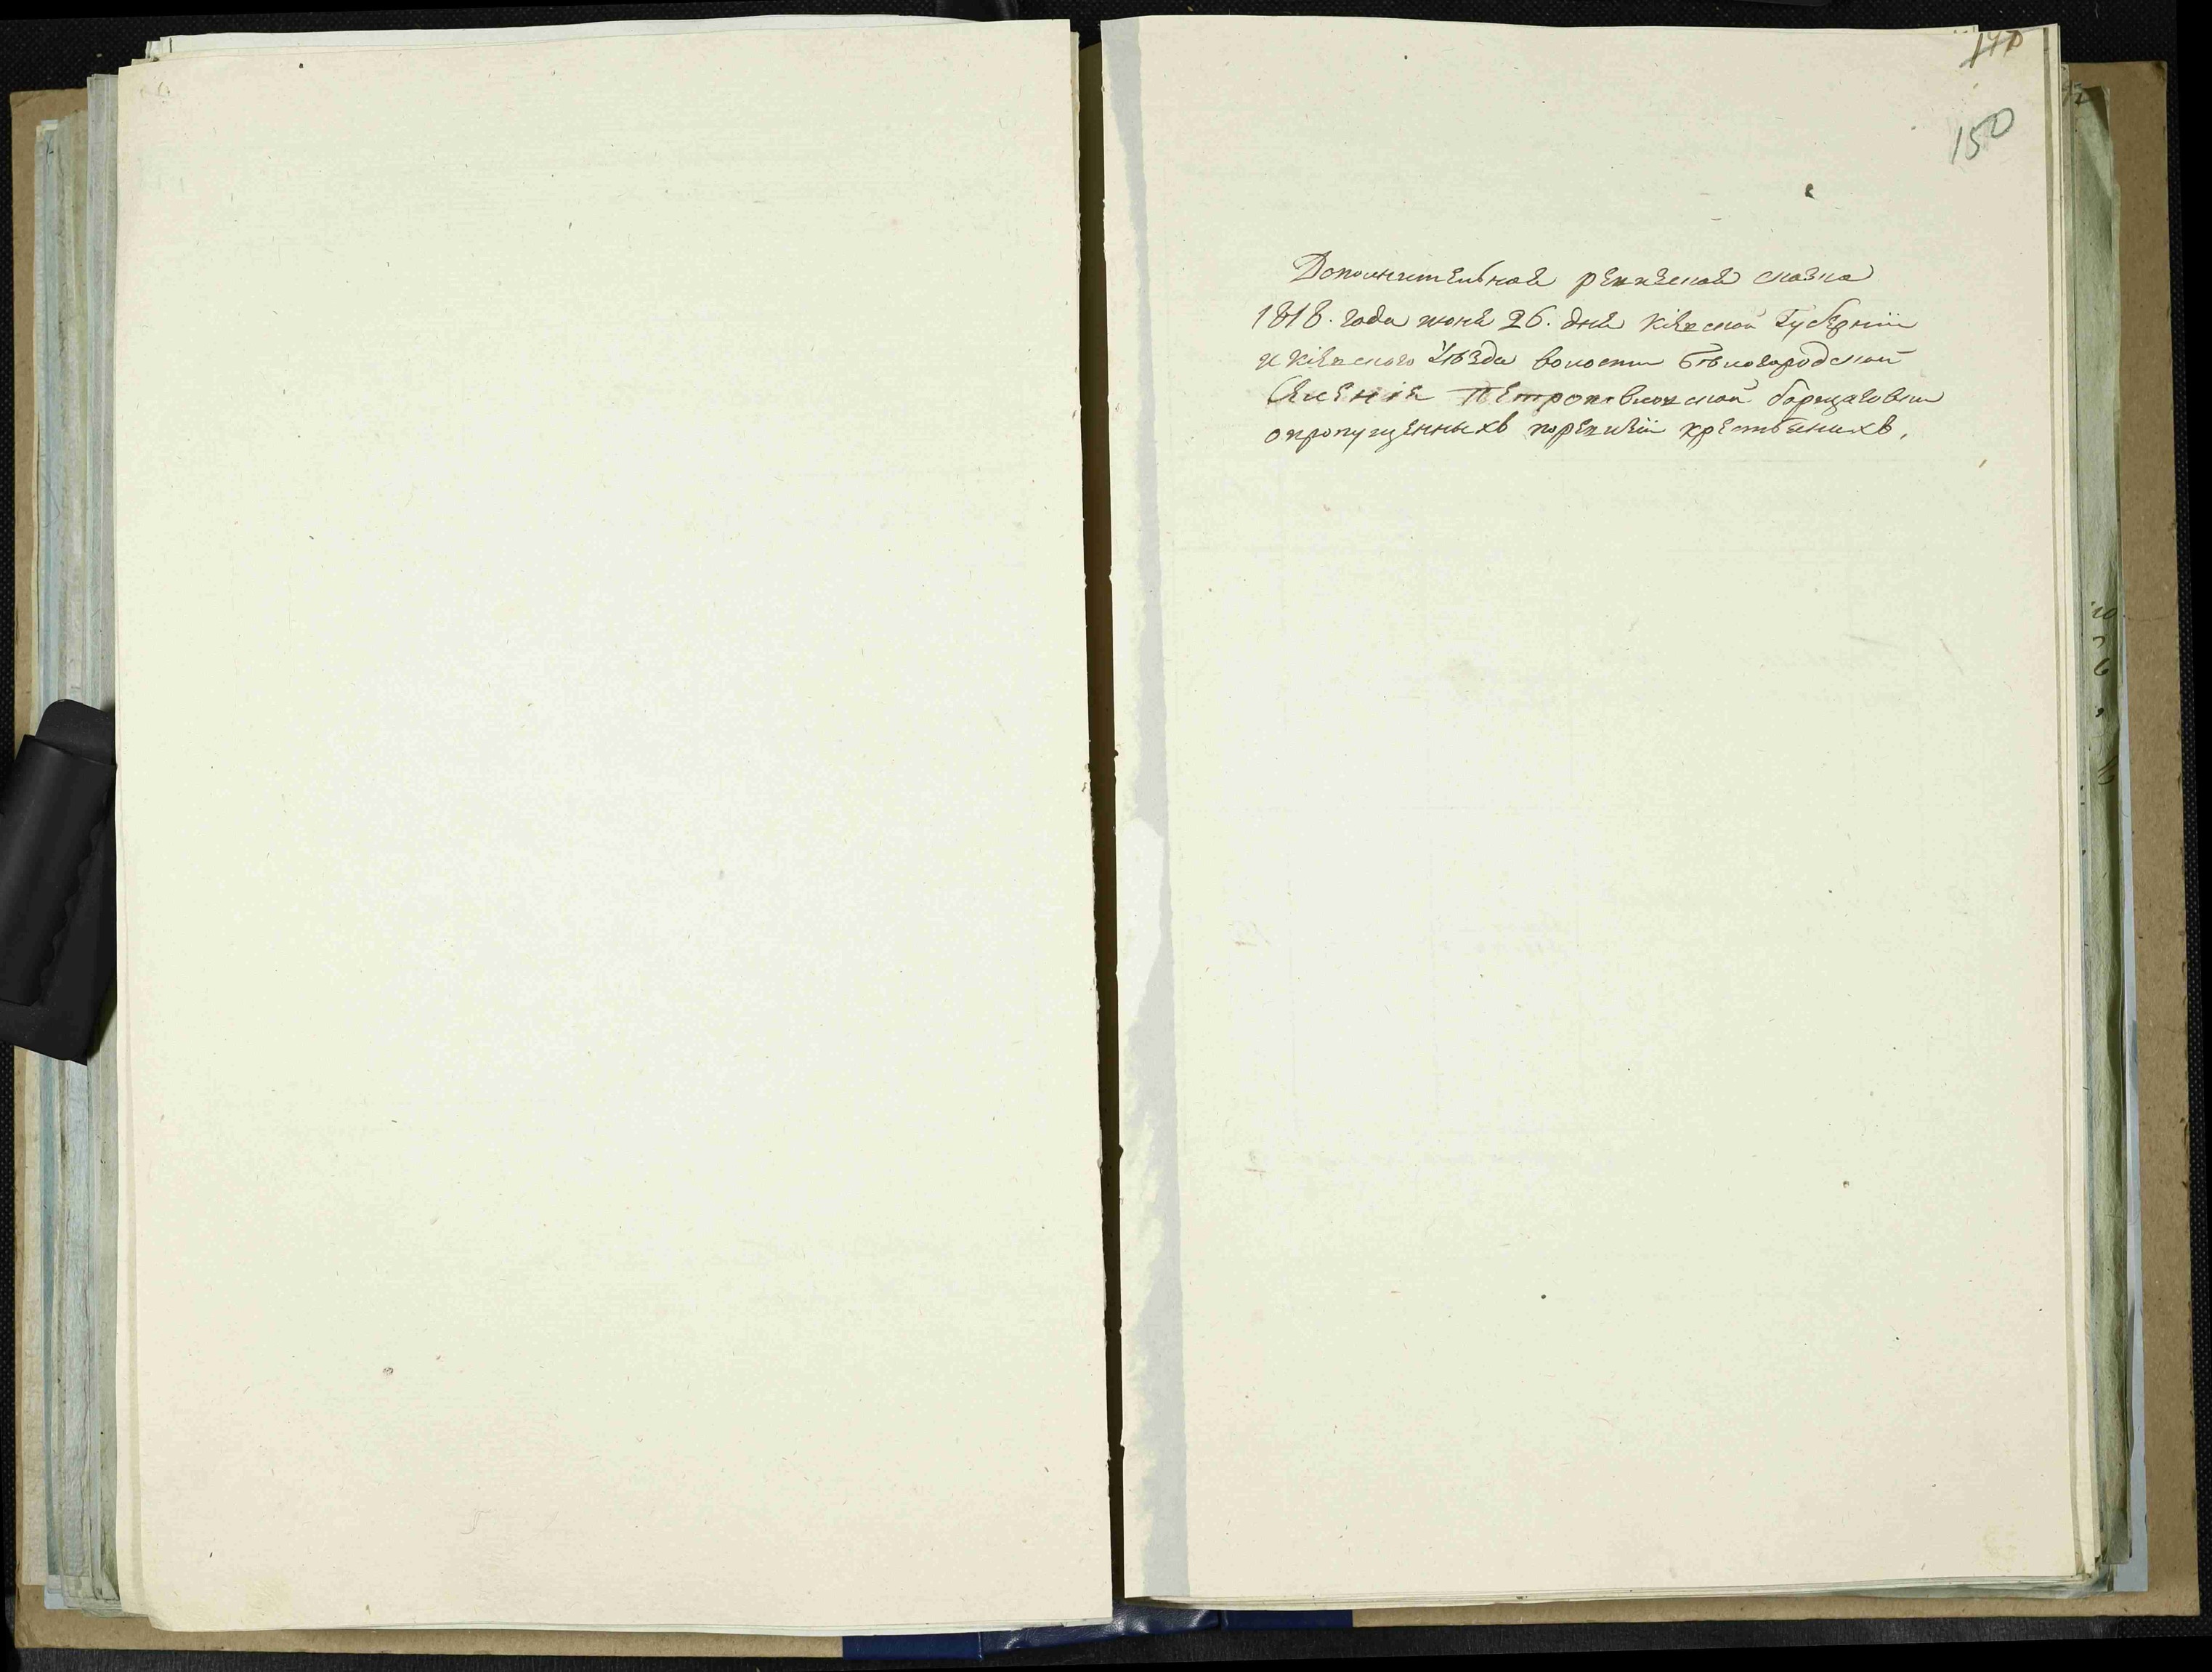 150
Дополнителная ревизская сказка
1818. года июня 26. дня Кіевской Губерніи
и Кіевского Уѣзда волости Бѣлогородской
Селенія Петропавловской борщаговки
о пропущенныхъ по ревизіи крестьянихъ.